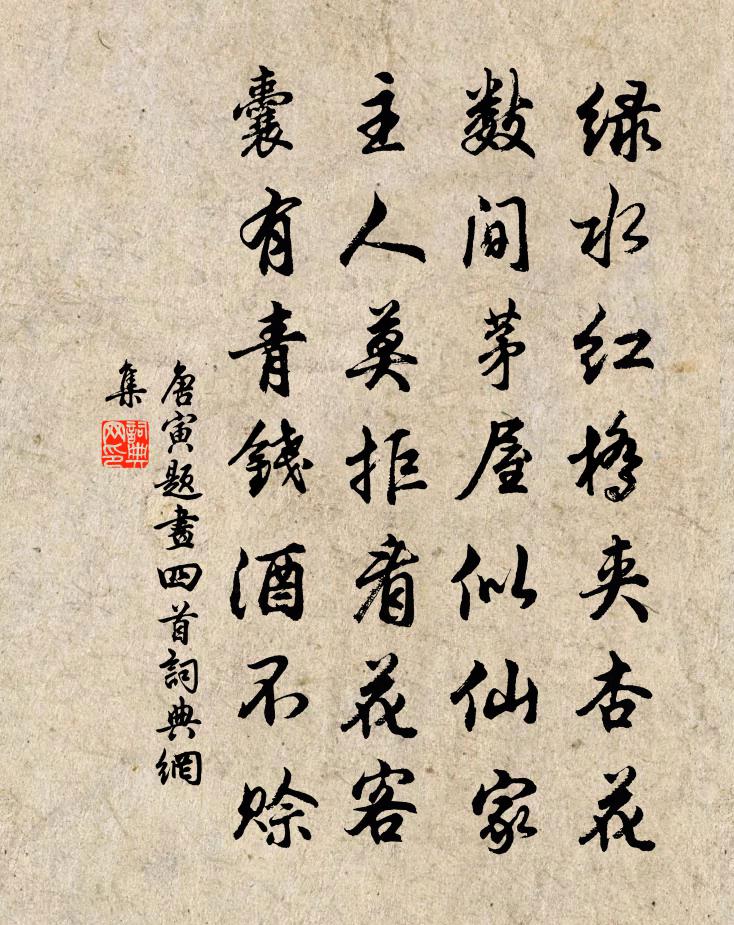 綠水红橋夹杏花
数间茅屋似仙家
主人莫拒看花客
囊有青錢酒不赊
唐寅题畫四首詞典網
集
詞典
网印